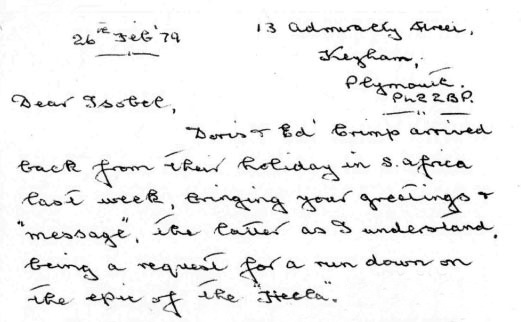 13 Admiralty Street,
26th Feb '79
Keyham,
Plymouth.
PL2 2BP.
Dear Isobel,
Doris & Ed' Crimp arrived
back from their holiday in S. Africa
last week, bringing your greetings &
"message", the latter as I understand,
being a request for a run down on
the epic of the "Hecla".